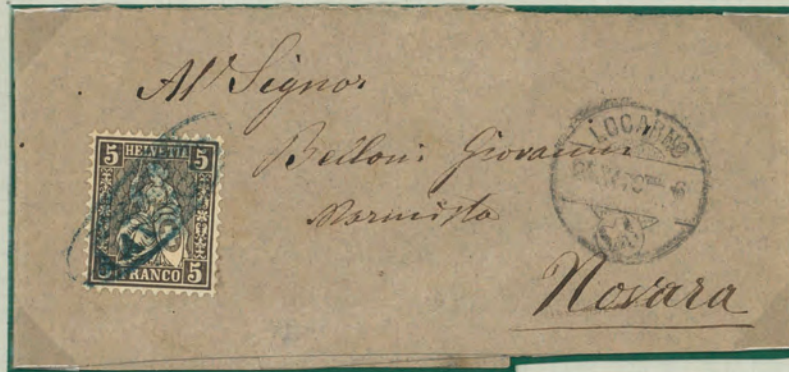 All' Signor
Belloni Giovanni
Marmista
Novara
5 HELVETIA 5
5 FRANCO 5
LOCARNO